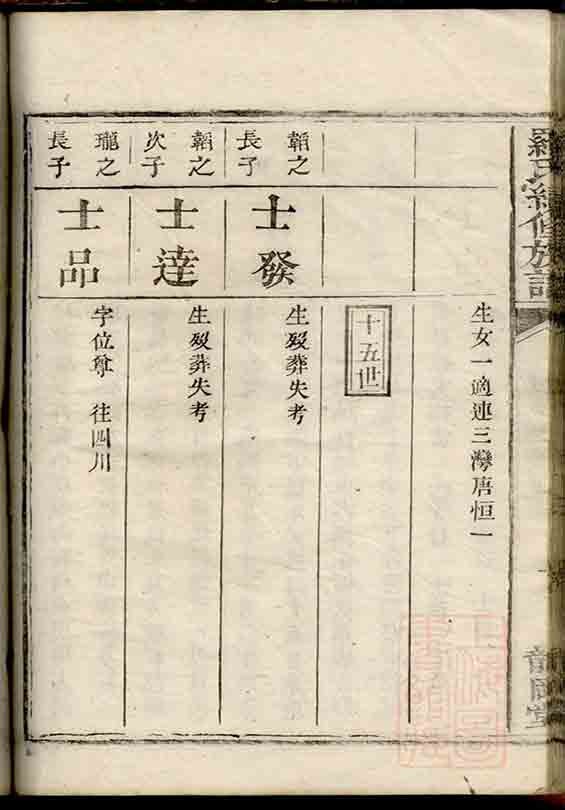 羅氏續修族譜
生女一適連三灣唐恒一
十五世
韜之
長子
士發
生歿葬失考
韜之
次子
士達
生歿葬失考
瓏之
長子
士品
字位尊 往四川